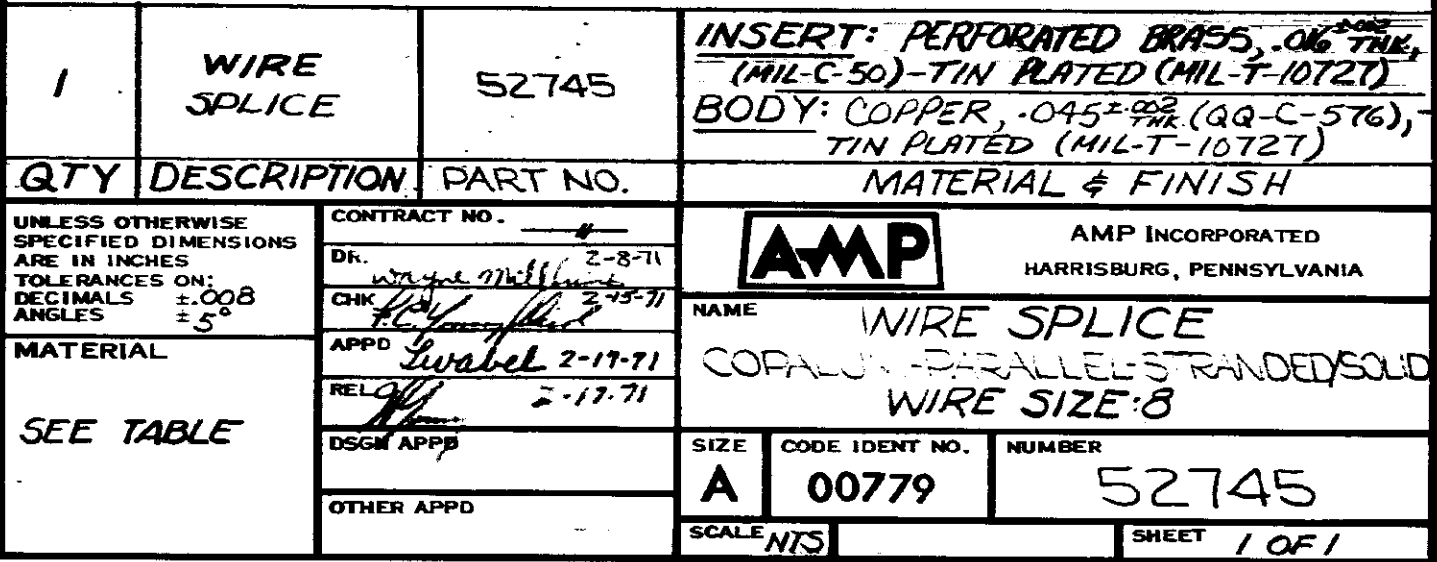 1
WIRE
SPLICE
52745
INSERT: PERFORATED BRASS, .016 ±.002 THK,
(MIL-C-50)-TIN PLATED (MIL-T-10727)
BODY: COPPER, .045 ±.002 THK. (QQ-C-576),
TIN PLATED (MIL-T-10727)
QTY DESCRIPTION PART NO. MATERIAL & FINISH
UNLESS OTHERWISE
SPECIFIED DIMENSIONS
ARE IN INCHES
TOLERANCES ON:
DECIMALS ±.008
ANGLES ±5°
MATERIAL
SEE TABLE
CONTRACT NO.
DR. 2-8-71
Wayne
CHK 2-15-71
APPD 2-17-71
REL 2-17-71
DSGN APPD
OTHER APPD
AMP
AMP INCORPORATED
HARRISBURG, PENNSYLVANIA
NAME
WIRE SPLICE
-PARALLEL-STRANDED/SOLID
WIRE SIZE:8
SIZE
A
CODE IDENT NO.
00779
NUMBER
52745
SCALE NTS
SHEET 1 OF 1